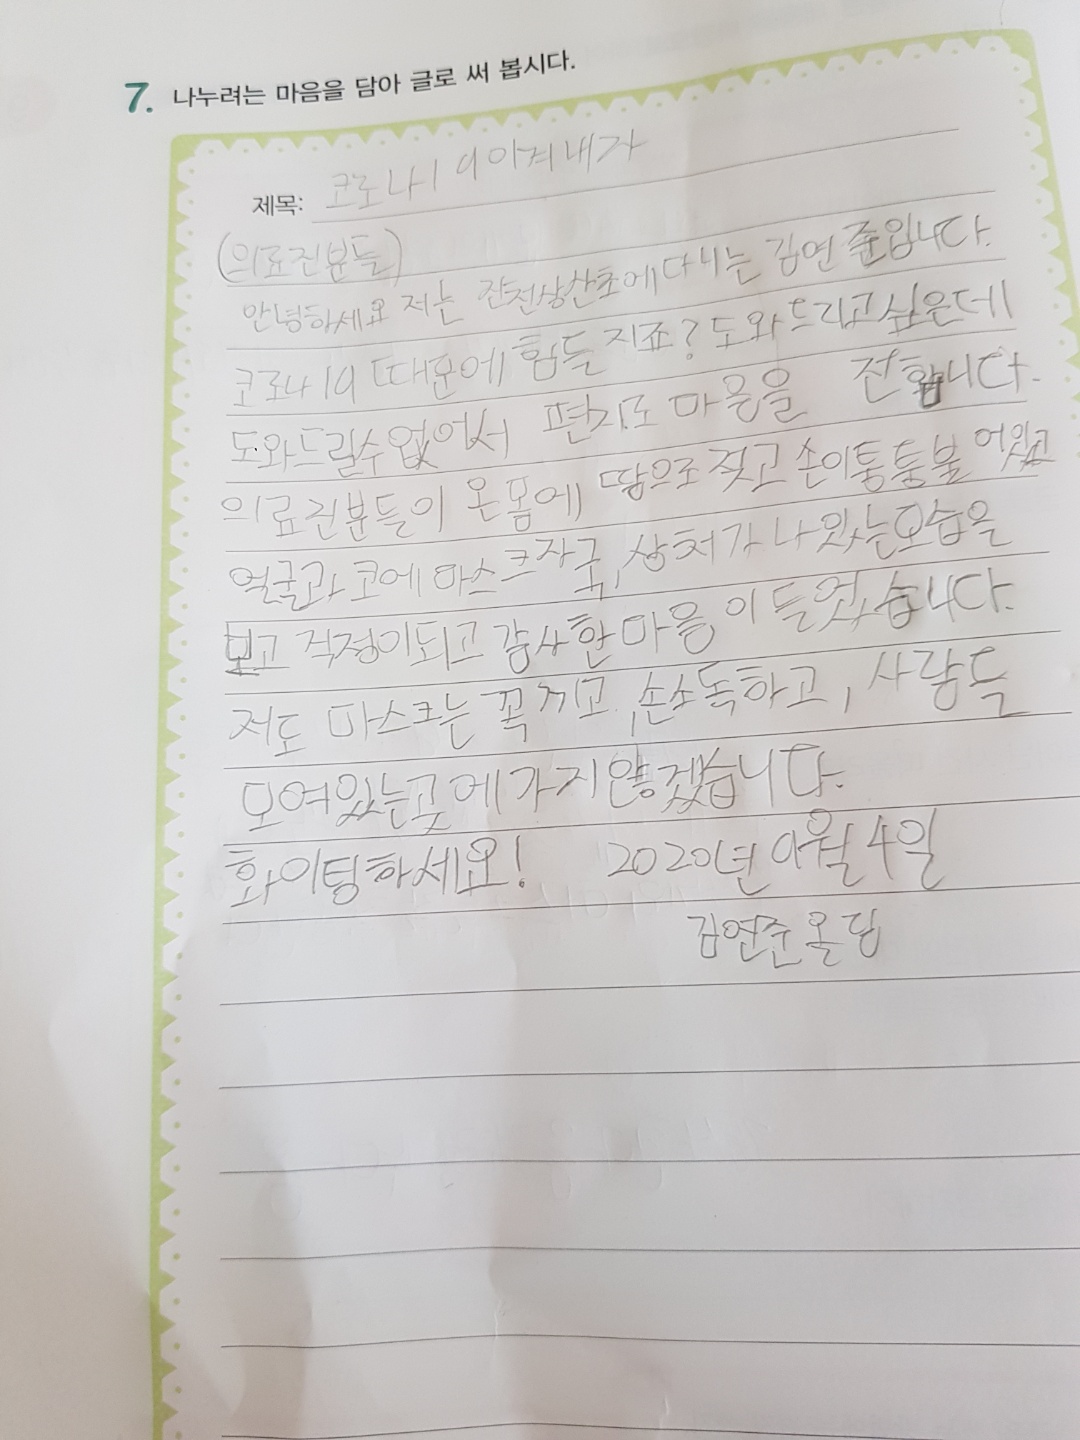 7. 나누려는 마음을 담아 글로 써 봅시다.
제목: 코로나19 이겨내자
(의료진분들)
안녕하세요 저는 진전상산초에다니는 김연준입니다.
코로나19 때문에 힘들지죠? 도와드리고싶은데
도와드릴수없어서 편지로 마음을 전합니다.
의료진분들이 온몸에 땀으로 젖고 손이퉁퉁불어있고
얼굴과 코에 마스크자국, 상처가 나있는모습을
보고 걱정이되고 감사한 마음이 들었습니다.
저도 마스크는 꼭끼고, 손소독하고, 사람들
모여있는곳에 가지않겠습니다.
화이팅하세요! 2020년 9월 4일
김연준올림